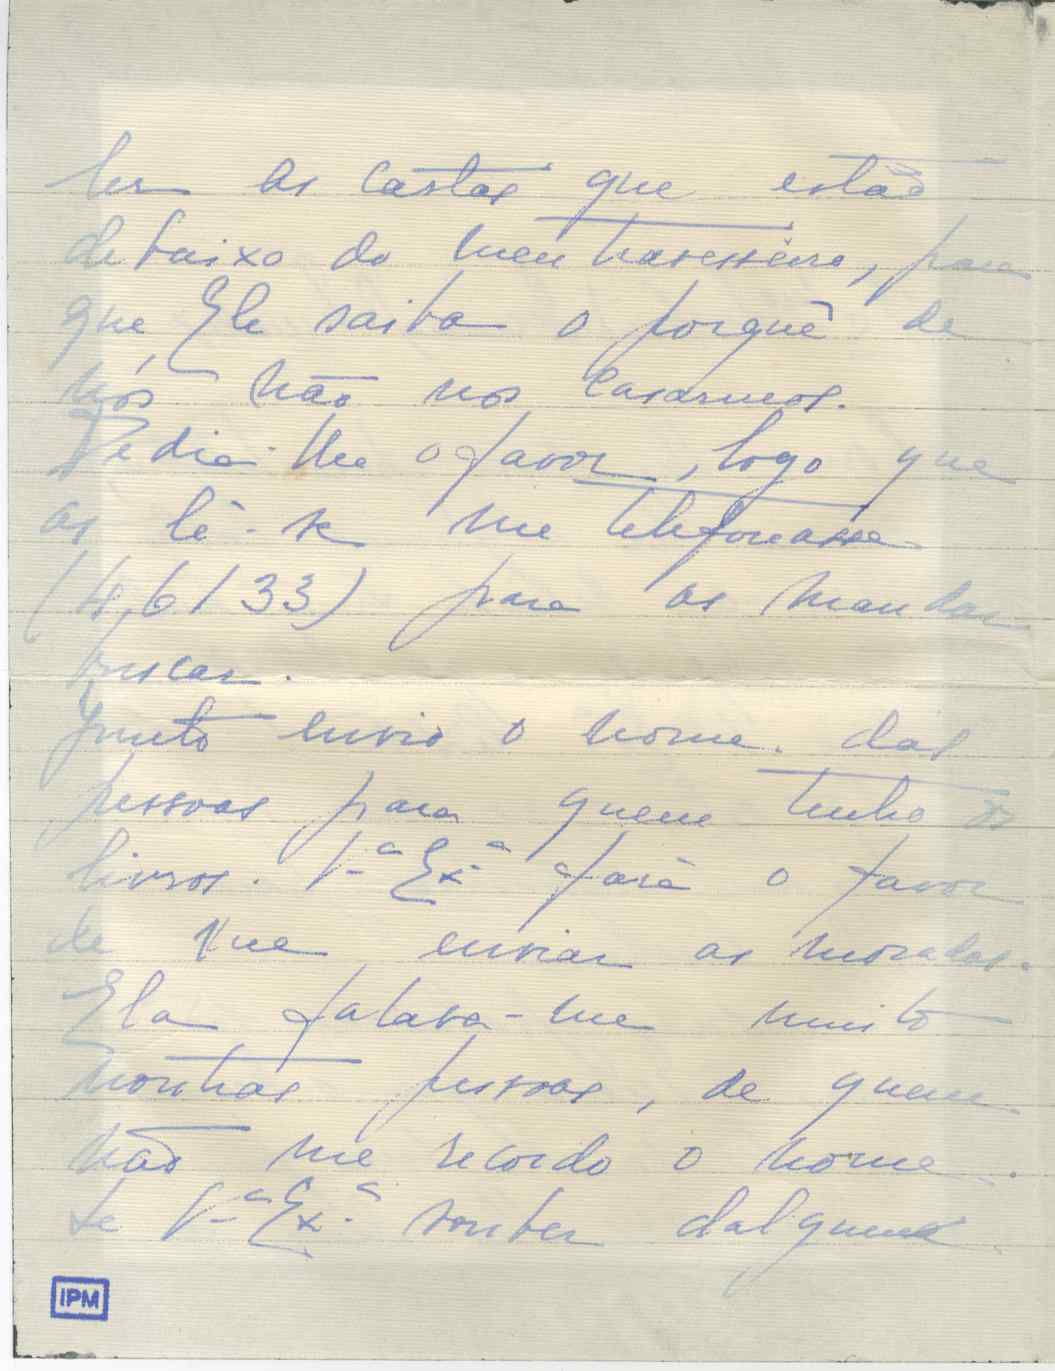 ler as cartas que estão
debaixo do meu travesseiro, para
que Ele saiba o porquê de
nós não nos casarmos.
Pedia-lhe o favor, logo que
as lê-se me telefonasse
(4,6133) para as mandar
buscar.
Junto envio o nome. das
pessoas para quem tenho os
livros. V.ª Ex.ª fará o favor
de me enviar as moradas.
Ela falava-me muito
noutras pessoas, de quem
não me recordo o nome.
Se V.ª Ex.ª souber dalguem
IPM